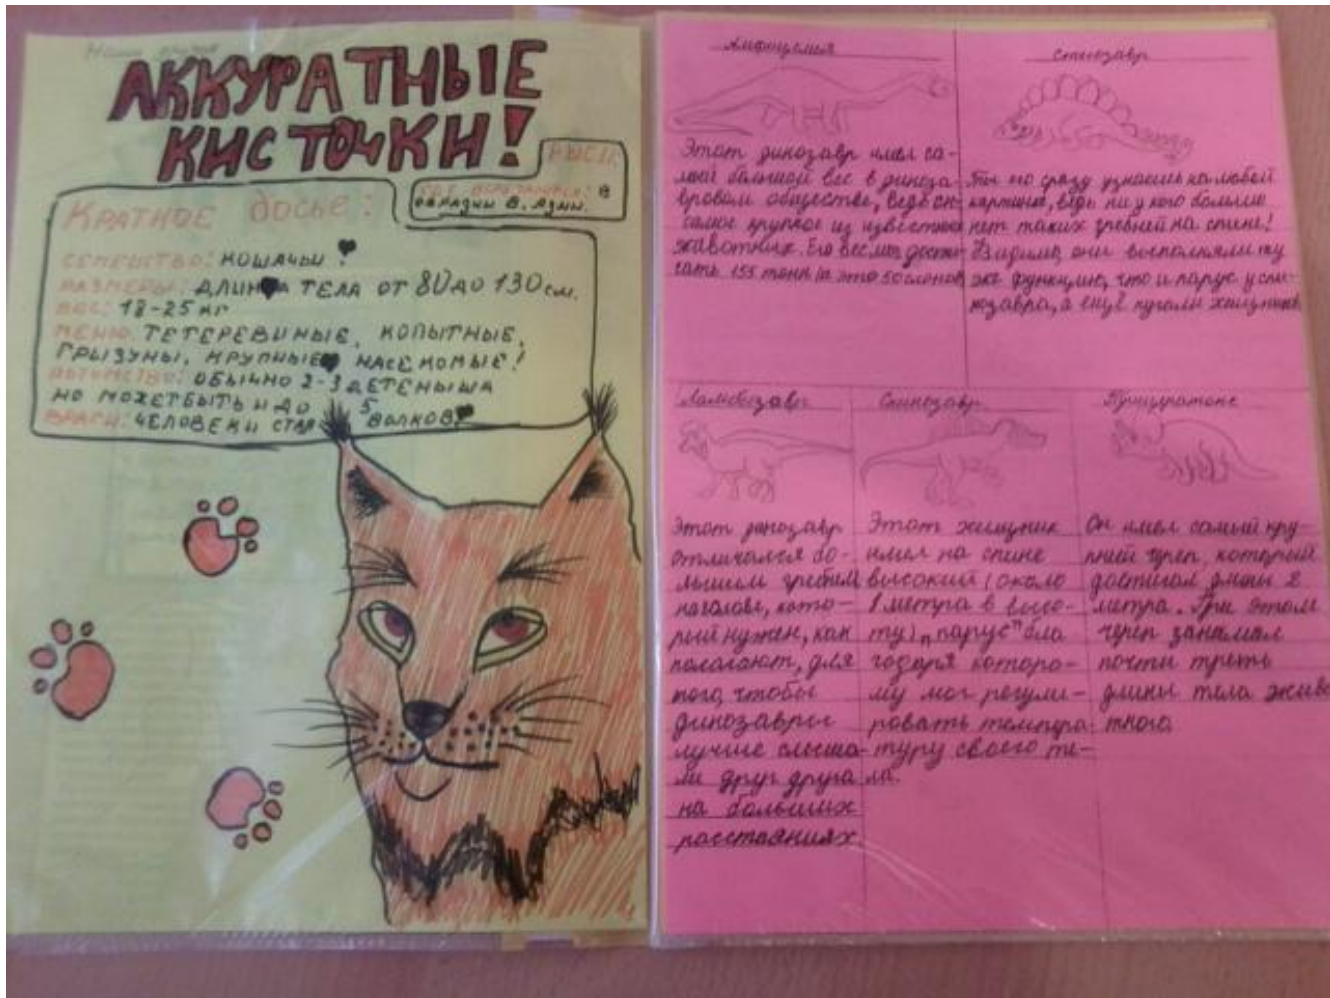 Наши друзья
АККУРАТНЫЕ
КИСТОЧКИ!
РЫСЬ
ГДЕ ВСТРЕЧАЕТСЯ: В
В. АЗИИ.
КРАТКОЕ досье:
СЕМЕЙСТВО: КОШАЧЬИ!
РАЗМЕРЫ: ДЛИННА ТЕЛА ОТ 80 ДО 130 см.
ВЕС: 18-25 кг
МЕНЮ: ТЕТЕРЕВИНЫЕ, КОПЫТНЫЕ,
ГРЫЗУНЫ, КРУПНЫЕ НАСЕКОМЫЕ!
ПОТОМСТВО: ОБЫЧНО 2-3 ДЕТЕНЫША
НО МОЖЕТ БЫТЬ И ДО 5
ВРАГИ: ЧЕЛОВЕК И СТАЯ ВОЛКОВ
Амфицелия
Этот динозавр имел са-
мый большой вес в диноза-
вровом обществе, ведь он
самое крупное из известных
животных. Его вес мог дости-
гать 155 тонн (а это 50 слонов
Стегозавр
Ты его сразу узнаешь на любой
картинке, ведь ни у кого больше
нет таких гребней на спине!
Видимо, они выполняли ту
же функцию, что и парус у спи-
нозавра, а ещё пугали хищников
Ламбеозавр
Этот динозавр
отличался бо-
льшим гребнем
на голове, кото-
рый нужен, как
полагают, для
того, чтобы
динозавры
лучше слыша-
ли друг друга
на больших
расстояниях.
Спинозавр
Этот хищник
имел на спине
высокий (около
метра в высо-
ту) "парус" бла
годаря которо-
му мог регули-
ровать темпера-
туру своего те-
ла.
Трицератопс
Он имел самый кру-
пный череп, который
достигал длины 2
метра. При этом
череп занимал
почти треть
длины тела живо
тного.